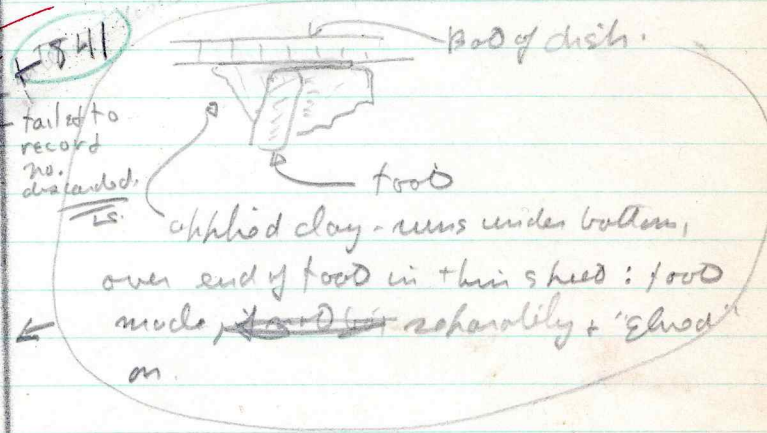 841
Bot of dish.
failed to
record
no.
discarded.
LS.
foot
applied clay - runs under bottom,
over end of foot in thin sheet : foot
made, separately + "glued"
on.